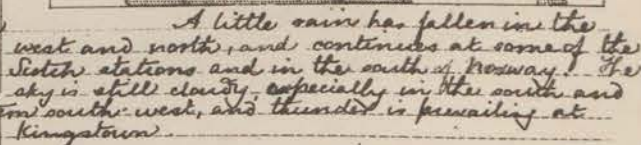 A little rain has fallen in the
west and north, and continues at some of the
Scotch stations and in the south of Norway. The
sky is still cloudy, especially in the south and
south-west, and thunder is prevailing at
Kingstown.